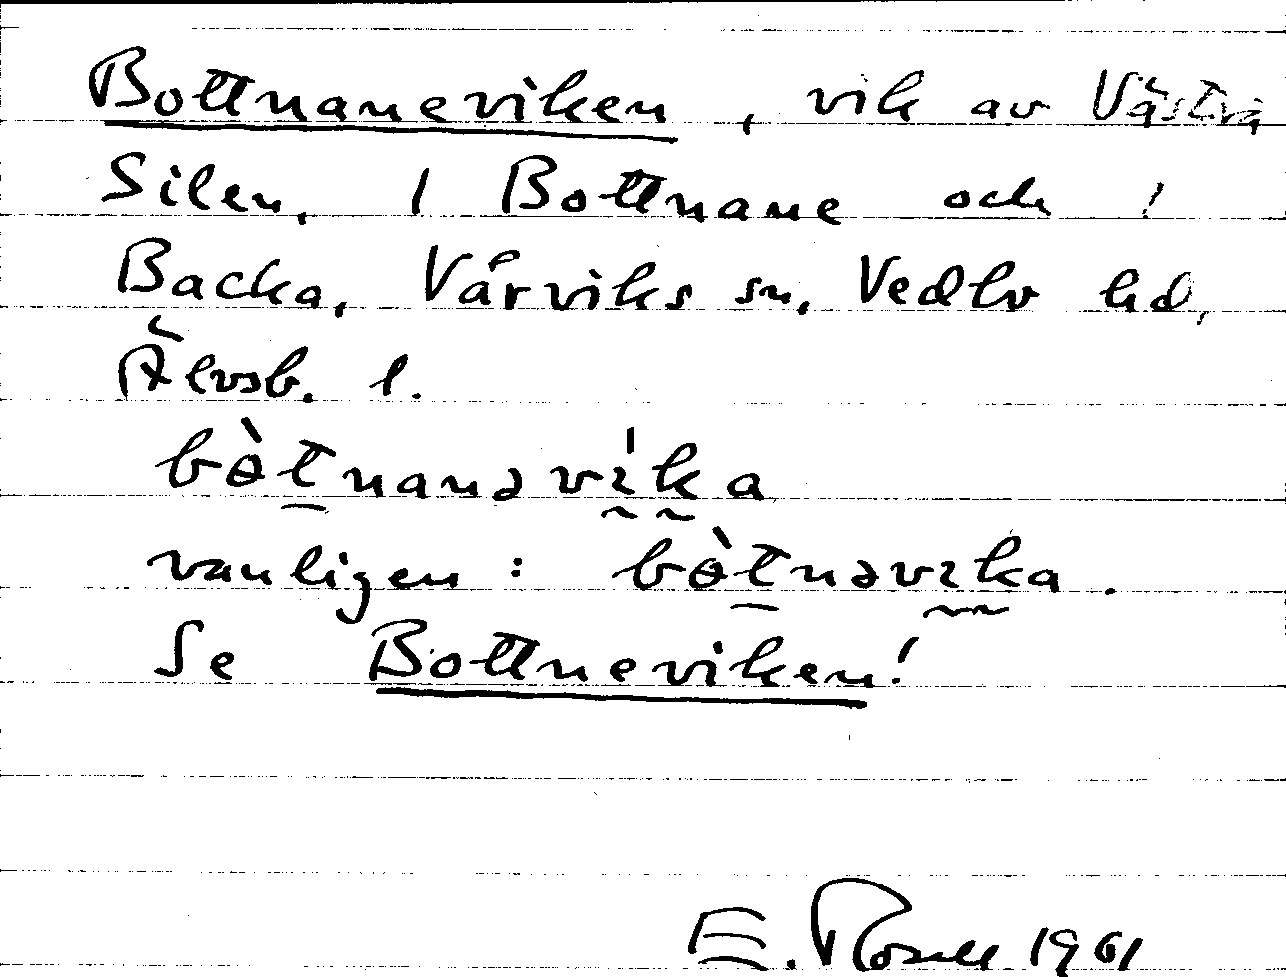 Bottnaneviken, vik av Västra
Silen, i Bottnane och i
Backa, Vårviks sn, Vedbo hd,
Älvsb. l.
bòtnanəvı̍ka
vanligen: bòtnəvıka.
Se Bottneviken!
E. Rosell 1961